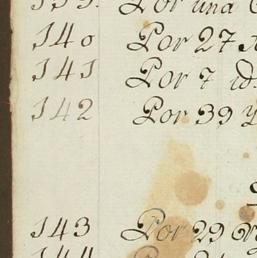 Por una
140 Por 27
141 Por 7 id
142 Por 39 y
143 Por 29
144